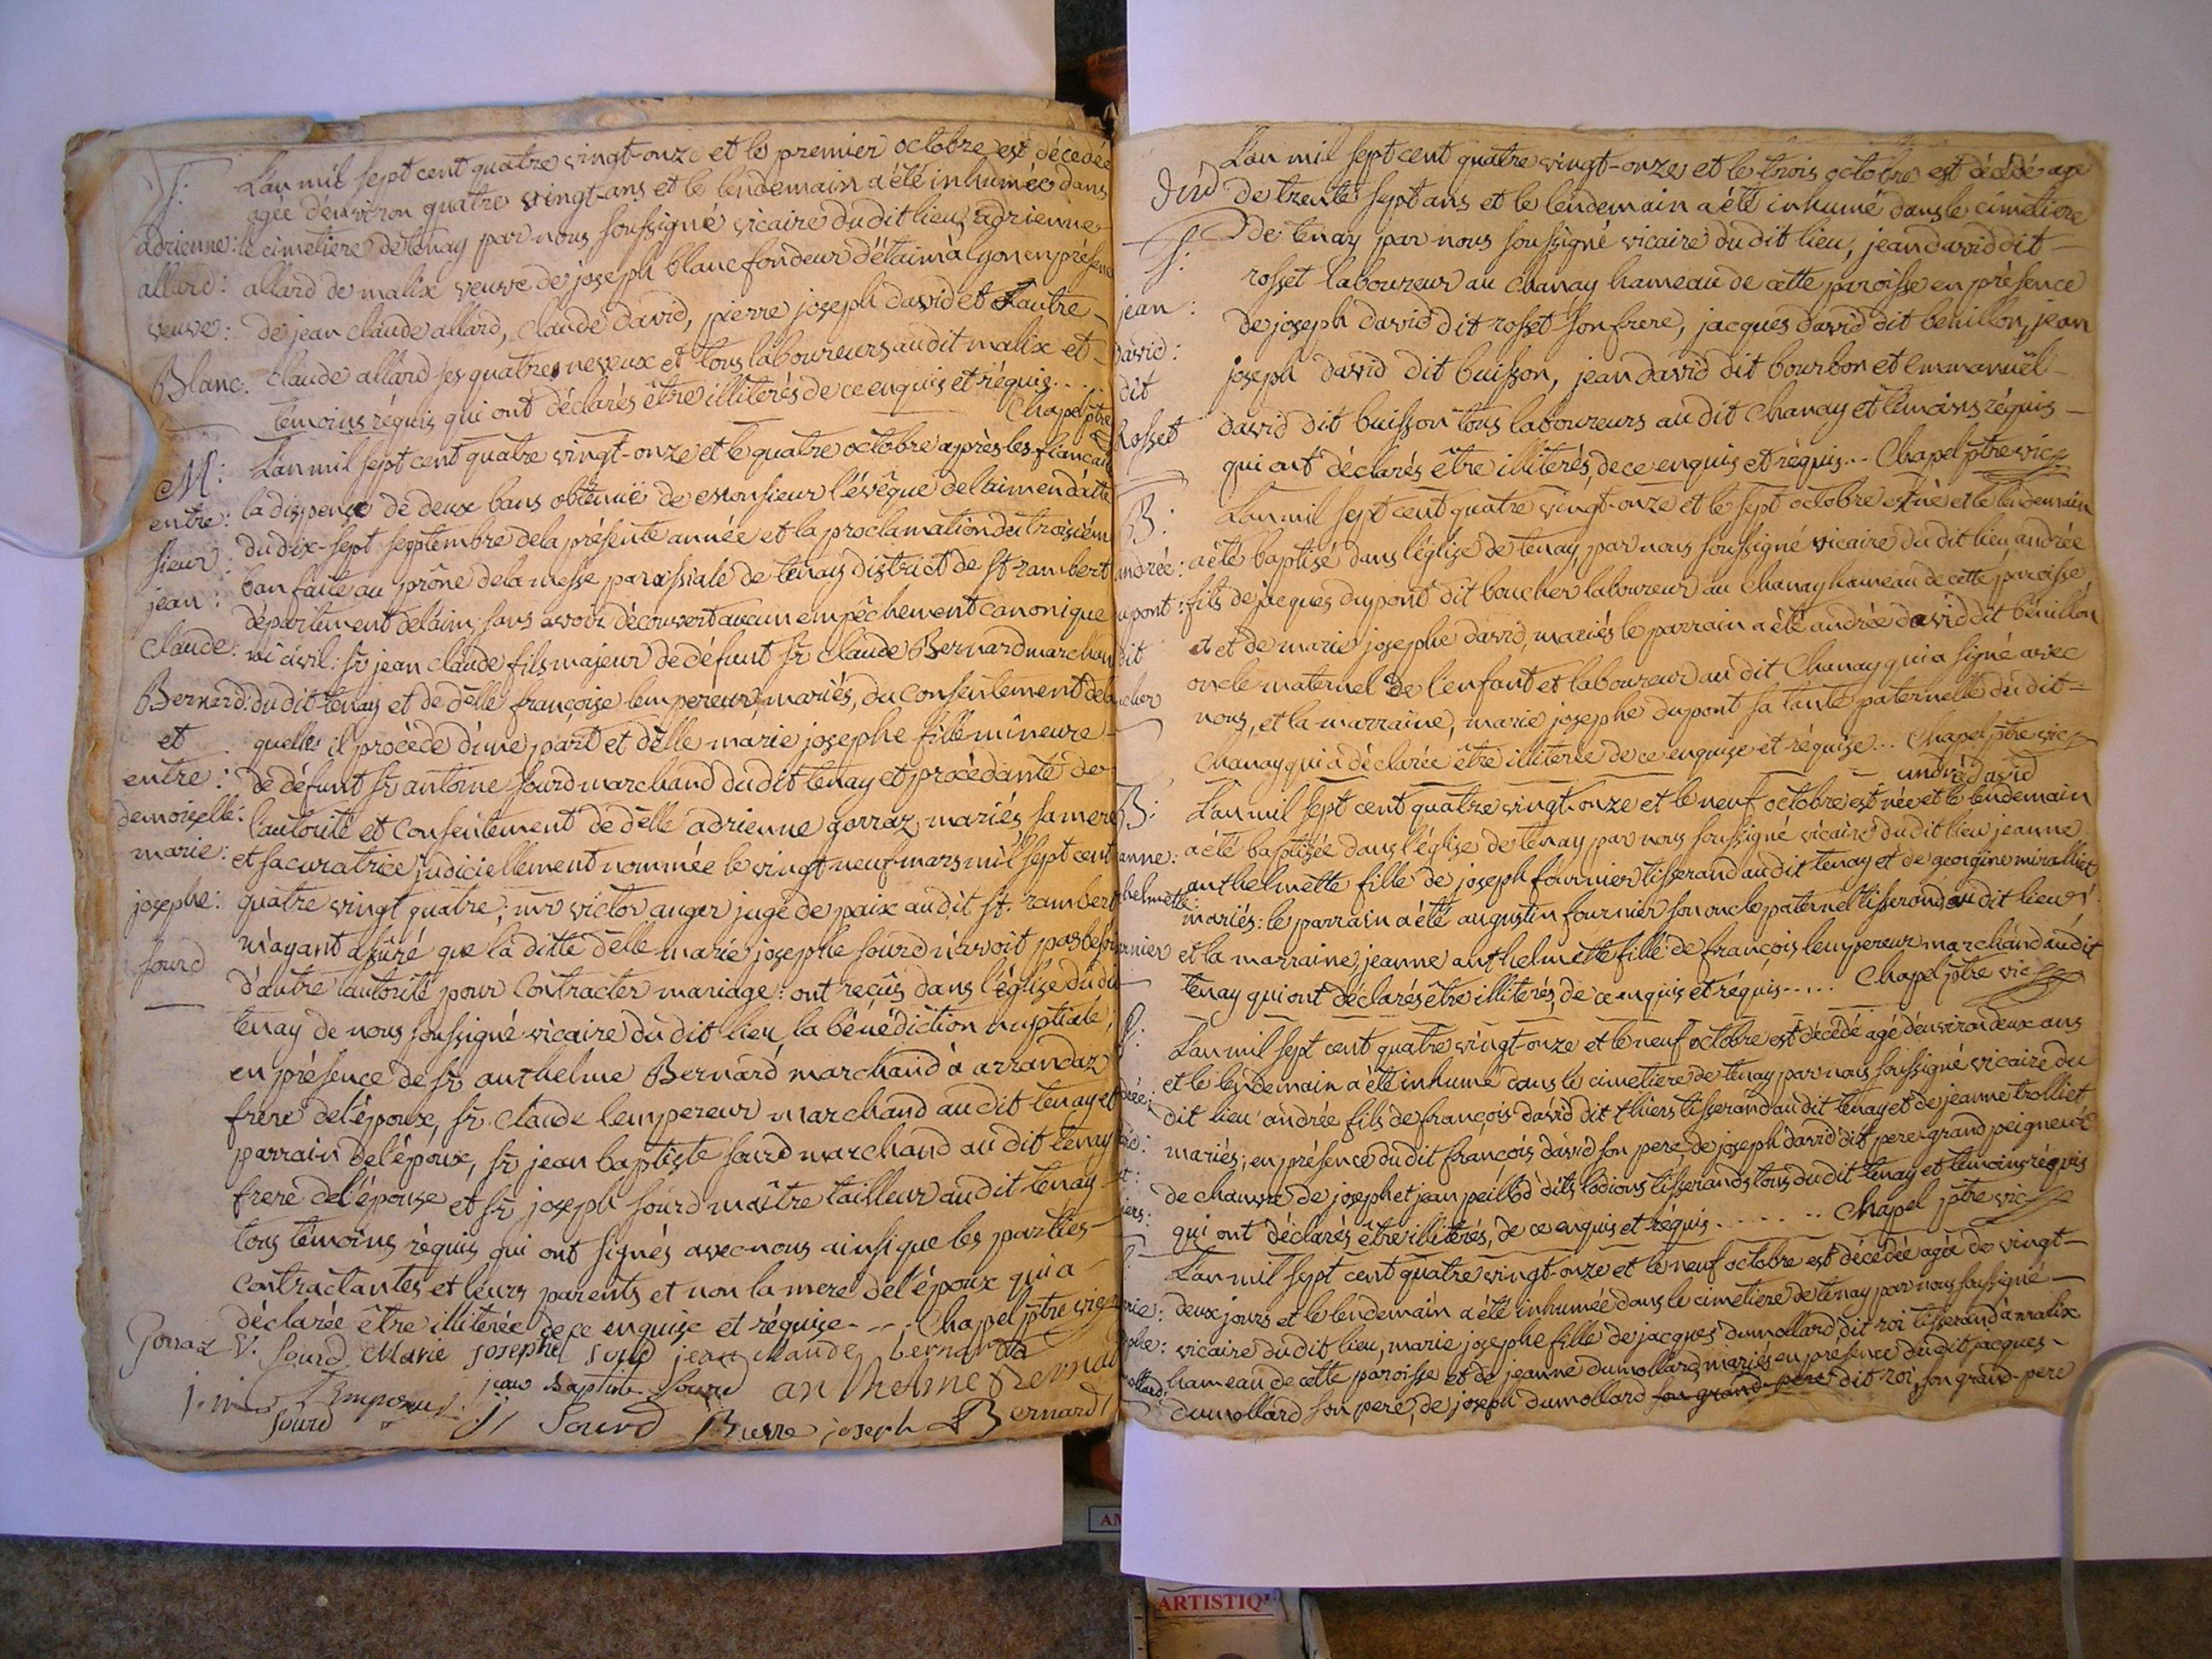 S:
adrienne:
allard:
veuve:
Blanc.
L'an mil sept cent quatre vingt-onze et le premier octobre est décedée
agée d'environ quatre vingt-ans et le lendemain a été inhumée dans
le cimetiere de tenay par nous soussigné vicaire du dit lieu, adrienne
allard de malix veuve de joseph blanc fondeur d'étaim à lyon en présence
de jean claude allard, claude david, pierre joseph david et l'autre
claude allard ses quatres neveux et tous laboureurs au dit malix et
témoins réquis qui ont déclarés être illiterés de ce enquis et réquis....
Chapel ptre
M:
entre:
sieur:
jean:
Claude:
Bernard:
et
entre:
demoiselle:
marie:
josephe:
sourd
L'an mil sept cent quatre vingt-onze et le quatre octobre après les fiancail
la dispense de deux bans obtenuë de Monsieur l'évêque de l'aim en datte
du dix-sept septembre de la présente année et la proclamation du troisiém
ban faite au prône de la messe paroissiale de tenay district de st rambert
département de l'aim, sans avoir découvert aucun empêchement canonique
ni civil: sr jean claude fils majeur de défunt sr claude Bernard marchan
du dit tenay et de delle françoise lempereur, mariés, du consentement de la
quelle il procède d'une part et delle marie josephe fille mineure
de défunt sr antoine sourd marchand du dit tenay et procèdante de
l'autorité et consentement de delle adrienne gorraz mariés sa mere
et sa curatrice judiciellement nommée le vingt neuf mars mil sept cent
quatre vingt quatre; mr victor auger juge de paix au dit st. rambert
m'ayant assuré que la ditte delle marie josephe sourd n'avoit pas besoin
d'autre autorité pour contracter mariage: ont reçus dans l'église du dit
tenay de nous soussigné vicaire du dit lieu la bénédiction nuptiale;
en présence de sr anthelme Bernard marchand à arrandaz
frere de l'époux, sr claude lempereur marchand au dit tenay et
parrain de l'époux, sr jean baptiste sourd marchand au dit tenay
frere de l'épouse et sr joseph sourd maître tailleur au dit tenay
tous témoins réquis qui ont signés avec nous ainsi que les parties
contractantes et leurs parents et non la mere de l'époux qui a
déclarée être illiterée de ce enquise et réquise.... Chapel ptre vic
Gorraz V. Sourd Marie josephe sourd jean claude bernard
Lempereur jean baptiste sourd anthelme Bernard
sourd J Sourd Pierre joseph Bernard
S:
jean:
david:
dit
Rosset
L'an mil sept cent quatre vingt-onze et le trois octobre est décédé agé
de trente sept ans et le lendemain a été inhumé dans le cimetiere
de tenay par nous soussigné vicaire du dit lieu, jean david dit
rosset laboureur au chanay hameau de cette paroisse en présence
de joseph david dit rosset son frere, jacques david dit benillon, jean
joseph david dit buisson, jean david dit bourbon et emmanuël
david dit buisson tous laboureurs au dit chanay et témoins réquis
qui ont déclarés être illiterés, de ce enquis et réquis... Chapel ptre vic
B:
andrée:
upont:
dit
ucher
L'an mil sept cent quatre vingt-onze et le sept octobre est né et le lendemain
a été baptisé dans l'église de tenay, par nous soussigné vicaire du dit lieu andrée
fils de jacques dupont dit boucher laboureur au chanay hameau de cette paroisse
et et de marie josephe david, mariés le parrain a été andrée david dit bénillon
oncle maternel de l'enfant et laboureur au dit Chanay qui a signé avec
nous, et la marraine, marie josephe dupont sa tante paternelle du dit
Chanay qui a déclarée être illiterée de ce enquise et réquise... Chapel ptre vic
andré david
B:
anne:
helmette:
rnier
L'an mil sept cent quatre vingt-onze et le neuf octobre est née et le lendemain
a été baptisée dans l'église de tenay par nous soussigné vicaire du dit lieu jeanne
anthelmette fille de joseph fournier tisserand au dit tenay et de georgine miralliet
mariés: le parrain a été augustin fournier son oncle paternel tisserand au dit lieu
et la marraine, jeanne anthelmette fille de françois lempereur marchand au dit
tenay qui ont déclarés être illiterés, de ce enquis et réquis..... Chapel ptre vic
S:
drée:
vid:
it:
iers:
L'an mil sept cent quatre vingt-onze et le neuf octobre est décédé agé d'environ deux ans
et le lendemain a été inhumé dans le cimetiere de tenay par nous soussigné vicaire du
dit lieu andrée fils de françois david dit thiers tisserand au dit tenay et de jeanne trolliet
mariés; en présence du dit françois david son pere, de joseph david dit pere grand peigneur
de chanvre de joseph et jean peillod dits lodions tisserands tous du dit tenay et témoins réquis
qui ont déclarés être illiterés, de ce enquis et réquis....... Chapel ptre vic
rie:
phe:
ollard:
L'an mil sept cent quatre vingt-onze et le neuf octobre est décédée agée de vingt
deux jours et le lendemain a été inhumée dans le cimetiere de tenay par nous soussigné
vicaire du dit lieu, marie josephe fille de jacques dumollard dit roi tisserand à malix
hameau de cette paroisse et de jeanne dumollard, mariés en présence du dit jacques
dumollard son pere, de joseph dumollard son grand-pere dit roi, son grand-pere
ARTISTIQ